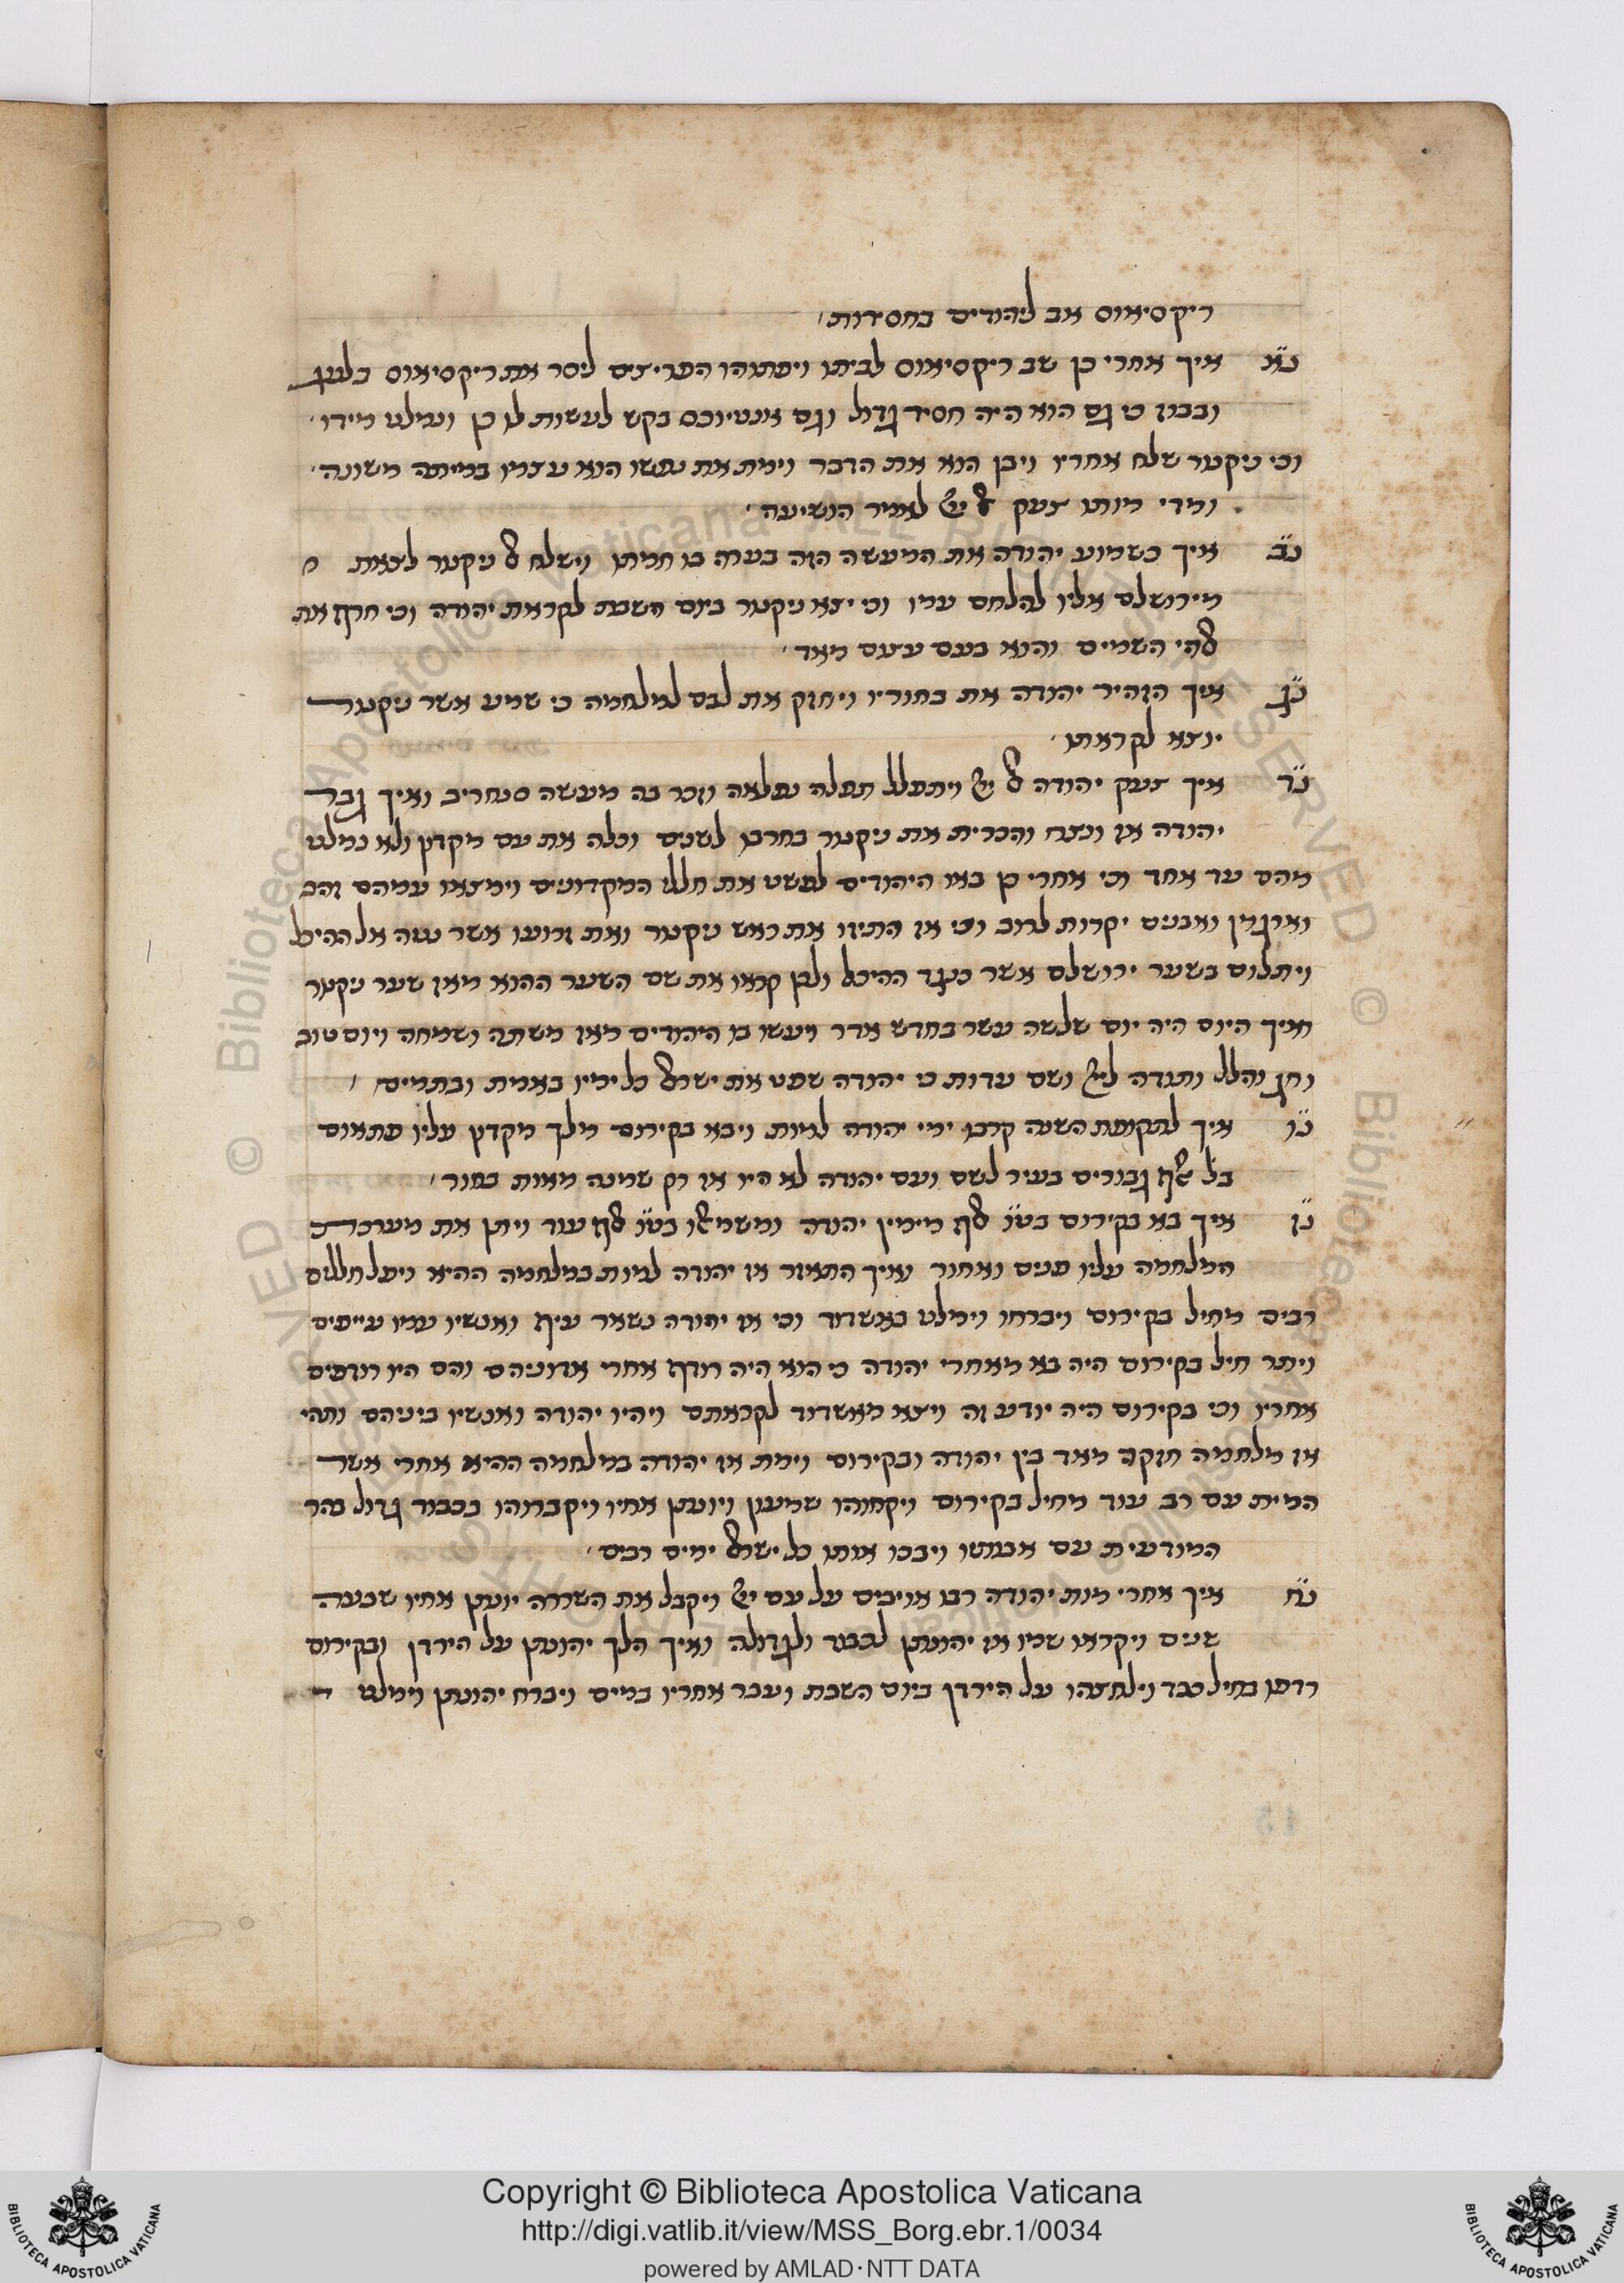 ריקסיאוס אב ליהודים בחסידות׳
נ״א איך אחרי כן שב ריקסיאוס לביתו ויפתוהו הפריצים ליסר את ריקסיאוס
גם הוא היה חסיד גדול וגם אנטיוכס בקש לעשות לו כן ונמלט מידו׳
וכי ניקנור שלח אחריו ויבן הוא את הדבר וימת את נפשו הוא עצמו במיתה משונה׳
ומידי מותו צעק אל ייי לאמר הושיעה׳
נ״ב איך כשמוע יהודה את המעשה הזה בערה בו חמתו וישלח אל ניקנור לצאת
מירושלם אליו להלחם עמו וכי יצא ניקנור ביום השבת לקראת יהודה וכי חרף את
אלהי השמים והוא בעם עצום מאד׳
נ״ג איך הזהיר יהודה את בחוריו ויחזק את לבם למלחמה כי שמע אשר ניקנור
יוצא לקראתו׳
נ״ד איך צעק יהודה אל ייי ויתפלל תפלה נפלאה וזכר בה מעשה סנחריב ואיך גבר
יהודה אז ונצח והכרית את ניקנור בחרבו לשנים וכלה את עם מקדון ולא נמלט
מהם עד אחד וכי אחרי כן באו היהודים לפשט את חללי המקדונים וימצאו עמהם זהב
וארגמן ואבנים יקרות לרוב וכי אז התיזו את ראש ניקנור ואת זרועו אשר נטה אל ההיכל
ויתלום בשער ירושלם אשר כנגד ההיכל ולכן קראו את שם השער ההוא מאז שער ניקנור
ואיך היום היה יום שלשה עשר בחדש אדר ויעשו בו היהודים מאז משתה ושמחה ויום טוב
וחג והלל ותודה לייי ושם עדות כי יהודה שפט את ישראל כל ימיו באמת ובתמים׳
נ״ו איך לתקופת השנה קרבו ימי יהודה למות ויבא בקירוס מלך מקדון עליו פתאום
בל׳ אלף גבורים בעיר לשם ועם יהודה לא היו אז רק שמונה מאות בחור׳
נ״ז איך בא בקירוס בט״ו אלף מימין יהודה ומשמאלו בט״ו אלף עוד ויתן את מערכת
המלחמה עליו פנים ואחור ואיך התאזר אז יהודה למות במלחמה ההיא ויפל חללים
רבים מחיל בקירוס ויברחו וימלט באשדוד וכי אז יהודה נשאר עיף ואנשיו עמו עייפים
ויתר חיל בקירוס היה בא מאחרי יהודה כי הוא היה רודף אחרי אדוניהם והם היו רודפים
אחריו וכי בקירוס היה יודע זה ויצא מאשדוד לקראתם ויהיו יהודה ואנשיו ביניהם ותהי
אז מלחמה חזקה מאד בין יהודה ובקירוס וימת אז יהודה במלחמה ההיא אחרי אשר
המית עם רב עוד מחיל בקירוס ויקחוהו שמעון ויונתן אחיו ויקברוהו בכבוד גדול בהר
המודעית עם אבותיו ויבכו אותו כל ישראל ימים רבים׳
נ״ח איך אחרי מות יהודה רבו אויבים על עם ייי ויקבל את השררה יונתן אחיו שבעה
שנים ויקראו שמו אז יהונתן לכבוד ולגדולה ואיך הלך יהונתן על הירדן ובקירוס
רדפו בחיל כבד וילחצהו על הירדן ביום השבת ועבר אחריו במים ויברח יהונתן וימלט
15
Copyright © Biblioteca Apostolica Vaticana
http://digi.vatlib.it/view/MSS_Borg.ebr.1/0034
powered by AMLAD·NTT DATA
BIBLIOTECA APOSTOLICA VATICANA
BIBLIOTECA APOSTOLICA VATICANA